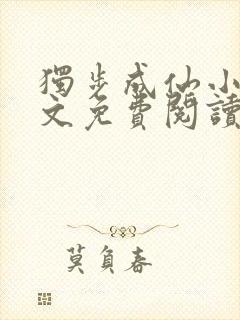 獨步成仙小
文免費閱讀
莫負春